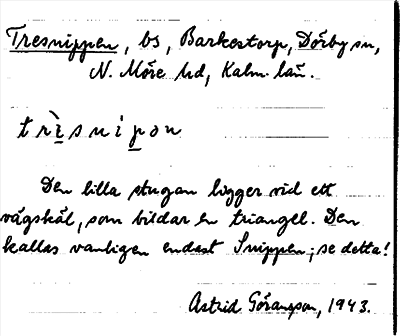 Tresnippen, bs, Barkestorp, Dörby sn,
N. Möre hd, Kalm. län.
trèsnipon
Den lilla stugan ligger vid ett
vägskäl, som bildar en triangel. Den
kallas vanligen endast Snippen; se detta!
Astrid Göransson, 1943.